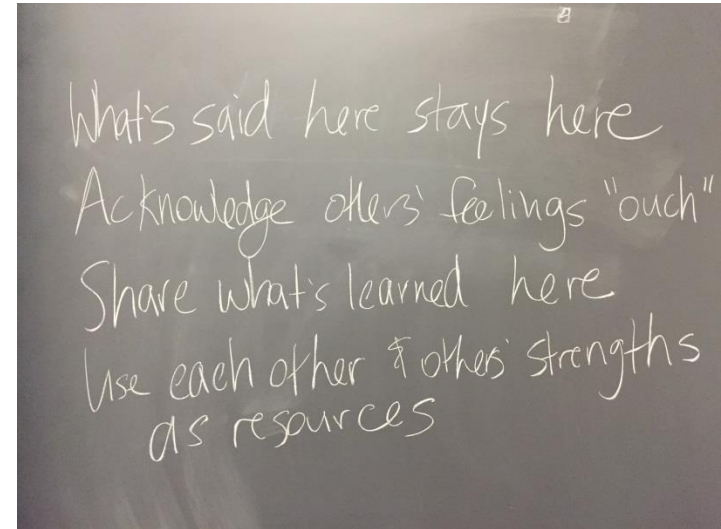 What's said here stays here
Acknowledge others' feelings "ouch"
Share what's learned here
Use each other & others' strengths
as resources